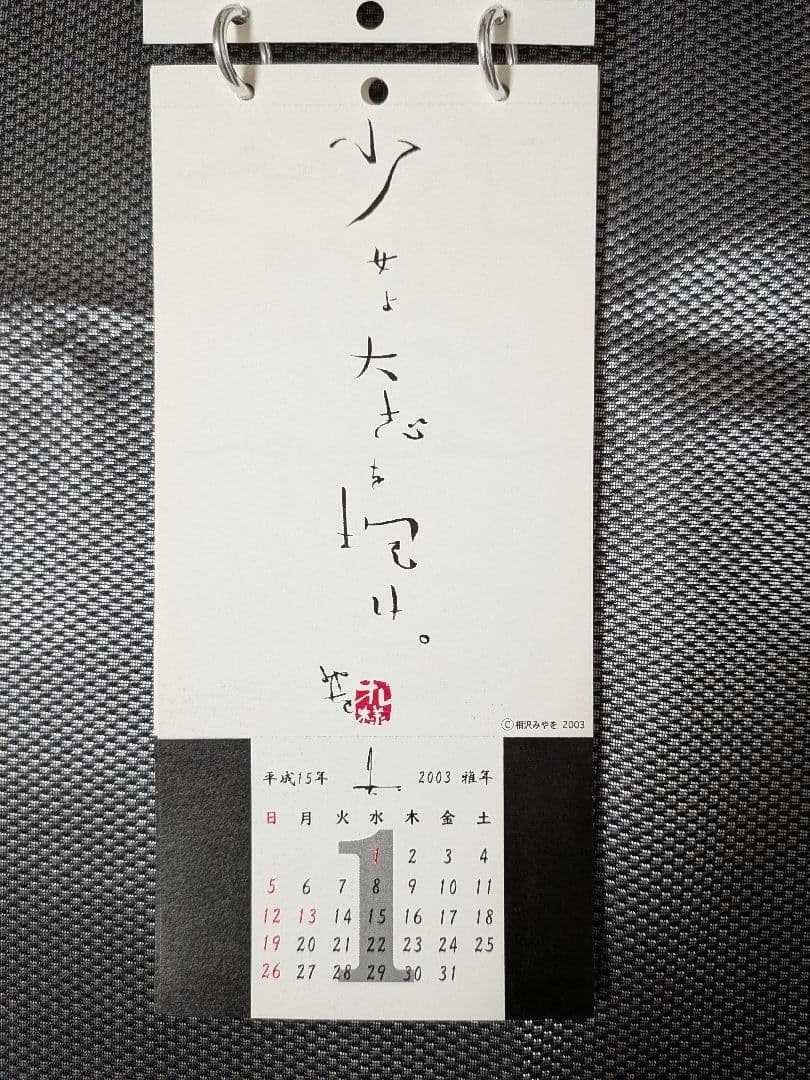 少女よ大志を抱け。
©相沢みやを 2003
平成15年 2003 雅年
日 月 火 水 木 金 土
1
1 2 3 4
5 6 7 8 9 10 11
12 13 14 15 16 17 18
19 20 21 22 23 24 25
26 27 28 29 30 31